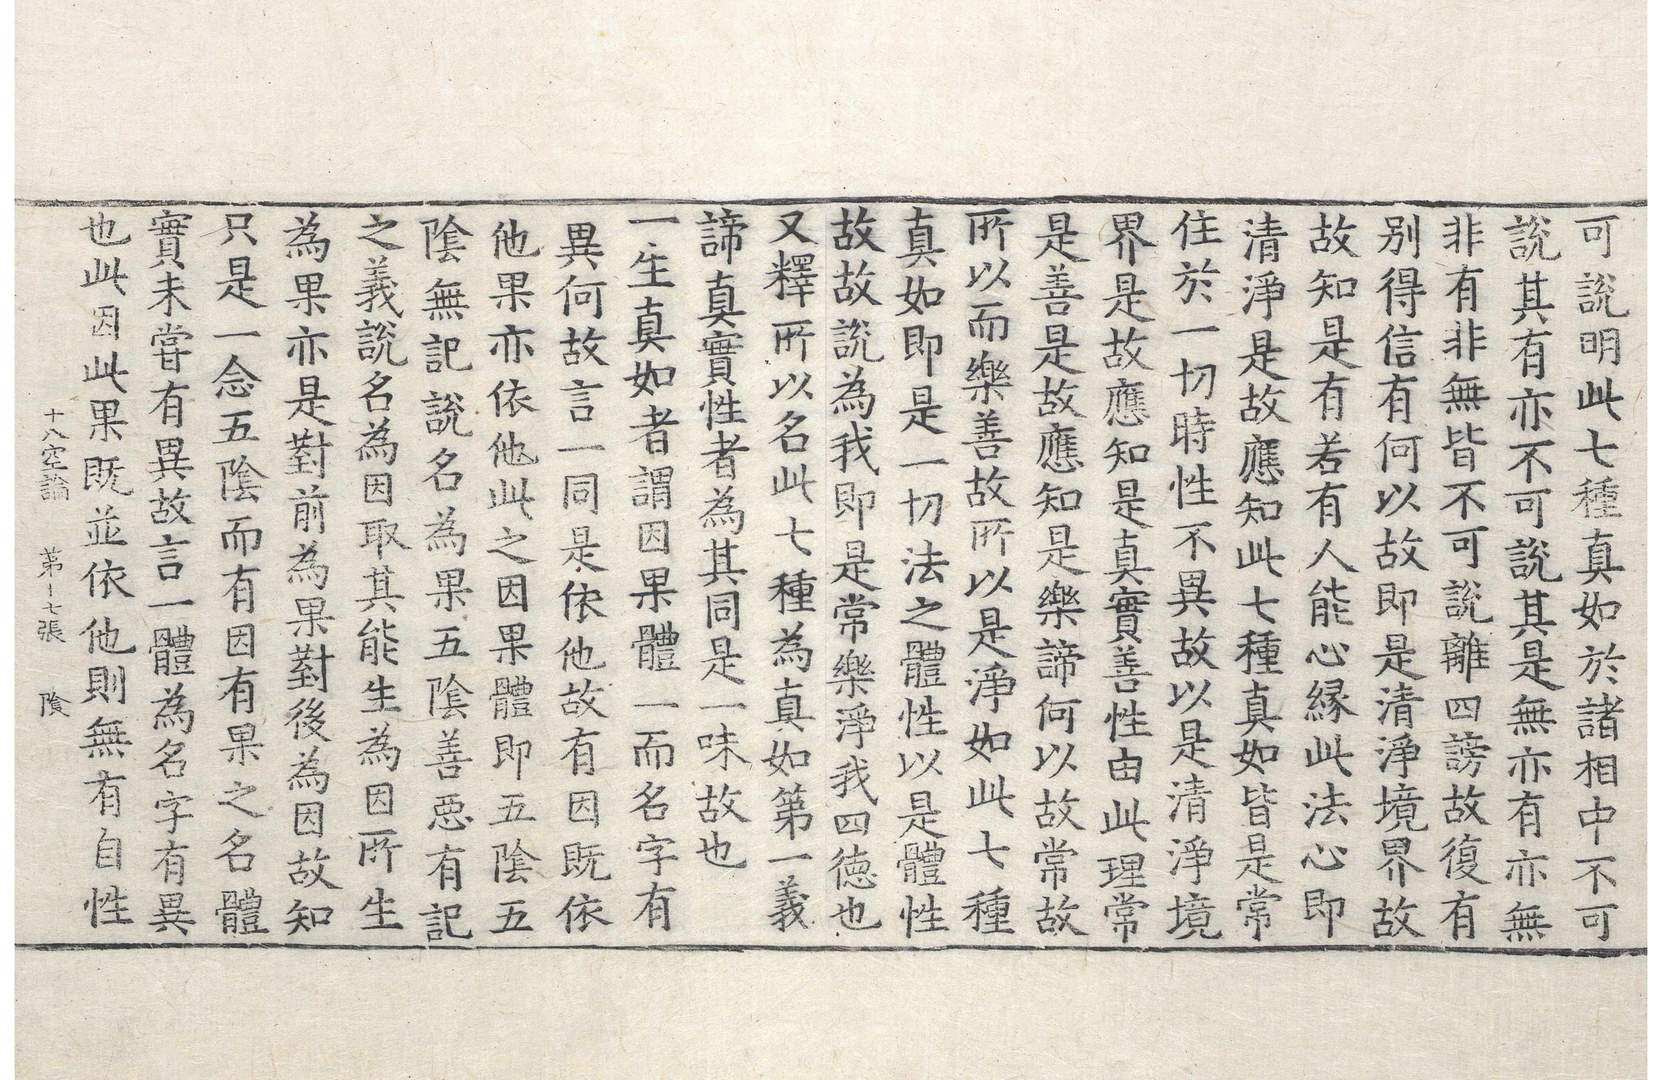 可說明此七種真如於諸相中不可
說其有亦不可說其是無亦有亦無
非有非無皆不可說離四謗故復有
別得信有何以故即是清淨境界故
故知是有若有人能心縁此法心即
清淨是故應知此七種真如皆是常
住於一切時性不異故以是清淨境
界是故應知是真實善性由此理常
是善是故應知是樂諦何以故常故
所以而樂善故所以是淨如此七種
真如即是一切法之體性以是體性
故故說為我即是常樂淨我四德也
又釋所以名此七種為真如第一義
諦真實性者為其同是一味故也
一生真如者謂因果體一而名字有
異何故言一同是依他故有因既依
他果亦依他此之因果體即五陰五
陰無記說名為果五陰善惡有記
之義說名為因取其能生為因所生
為果亦是對前為果對後為因故知
只是一念五陰而有因有果之名體
實未嘗有異故言一體為名字有異
也此因此果既並依他則無有自性
十八空論 第十七張 陰